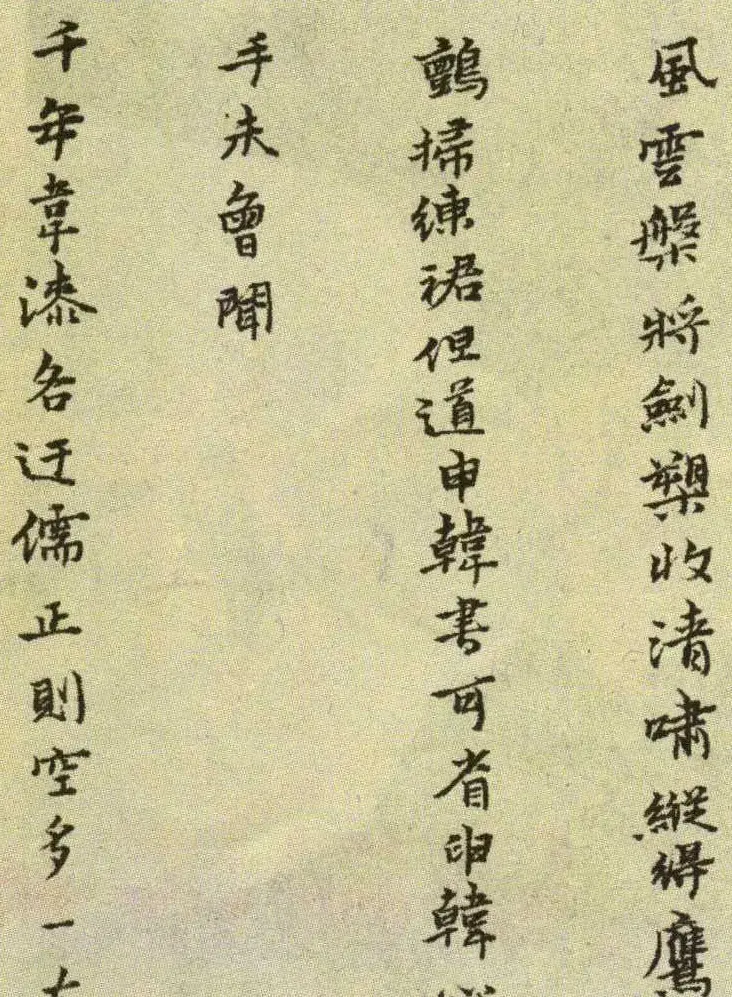 風雲槃將劍槊收清嘯縱得鷹
鸇掃練裙但道申韓書可省申韓
手未曾聞
千年韋漆各迂儒正則空多一